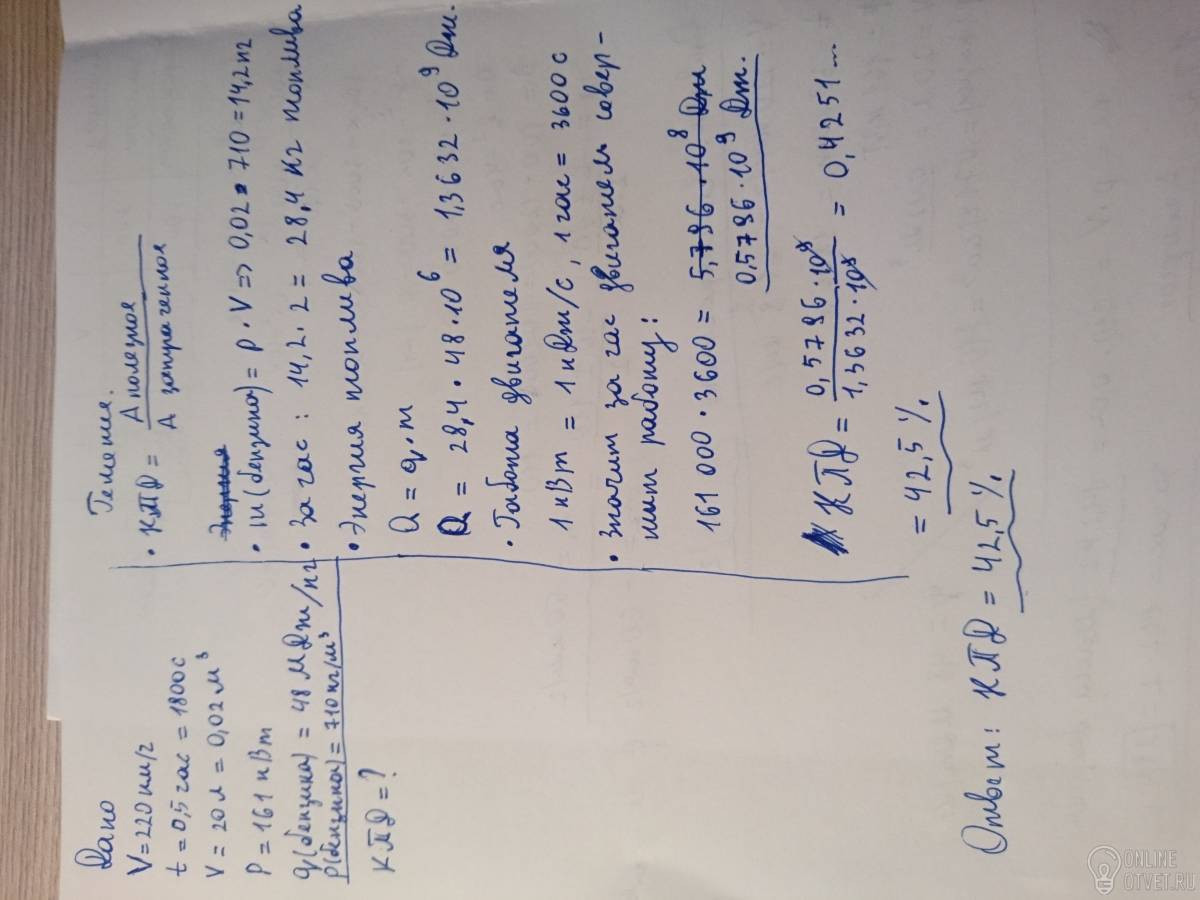 Дано
V = 220 км/г
t = 0,5 час = 1800 с
V = 20 л = 0,02 м³
P = 161 кВт
q(бензина) = 48 МДж/кг
ρ(бензина) = 710 кг/м³
КПД = ?
Решения.
• КПД = A полезное / A затраченное
• m(бензина) = ρ · V => 0,02 · 710 = 14,2 кг
• За час : 14,2 · 2 = 28,4 кг топлива
• Энергия топлива
Q = q · m
Q = 28,4 · 48 · 10⁶ = 1,3632 · 10⁹ Дж.
• Работа двигателя
1 кВт = 1 кДж/с , 1 час = 3600 с
• Значит за час двигатель совер-
шит работу:
161 000 · 3600 = 5,796 · 10⁸ Дж
0,5796 · 10⁹ Дж.
КПД = 0,5796 · 10⁹ / 1,3632 · 10⁹ = 0,4251...
= 42,5 %
Ответ : КПД = 42,5 %
ONLINE
OTVET.RU